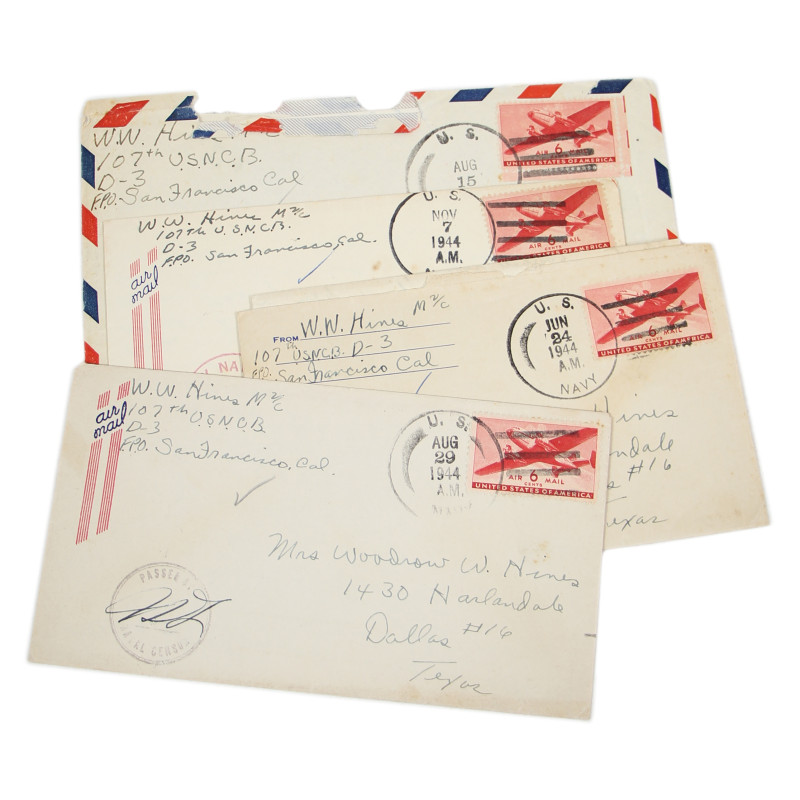 W.W. Hines
107th U.S.N.C.B.
D-3
F.P.O. San Francisco Cal
U. S.
AUG
15
AIR 6 MAIL
UNITED STATES OF AMERICA
W.W. Hines M 2/C
107th U.S.N.C.B.
D-3
F.P.O. San Francisco, Cal.
air
mail
U. S.
NOV
7
1944
A.M.
AIR 6 MAIL
CENTS
UNITED STATES OF AMERICA
FROM W.W. Hines M 2/C
107th USNCB. D-3
F.P.O. San Francisco Cal
U. S.
JUN
24
1944
A.M.
NAVY
6 MAIL
UNITED STATES OF AMERICA
Hines
Harlandale
#16
Texas
W.W. Hines M 2/C
107th U.S.N.C.B.
D-3
F.P.O. San Francisco, Cal.
air
mail
U. S.
AUG
29
1944
A.M.
AIR 6 MAIL
CENTS
UNITED STATES OF AMERICA
Mrs Woodrow W. Hines
1430 Harlandale
Dallas #16
Texas
PASSED
NAVAL CENSOR